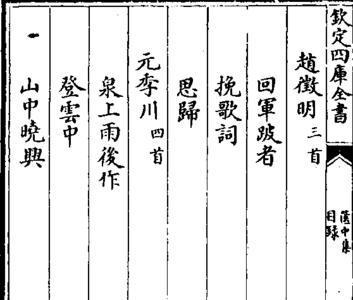 欽定四庫全書
篋中集
目錄
趙徵明三首
回軍跛者
挽歌詞
思歸
元季川四首
泉上雨後作
登雲中
山中曉興
一